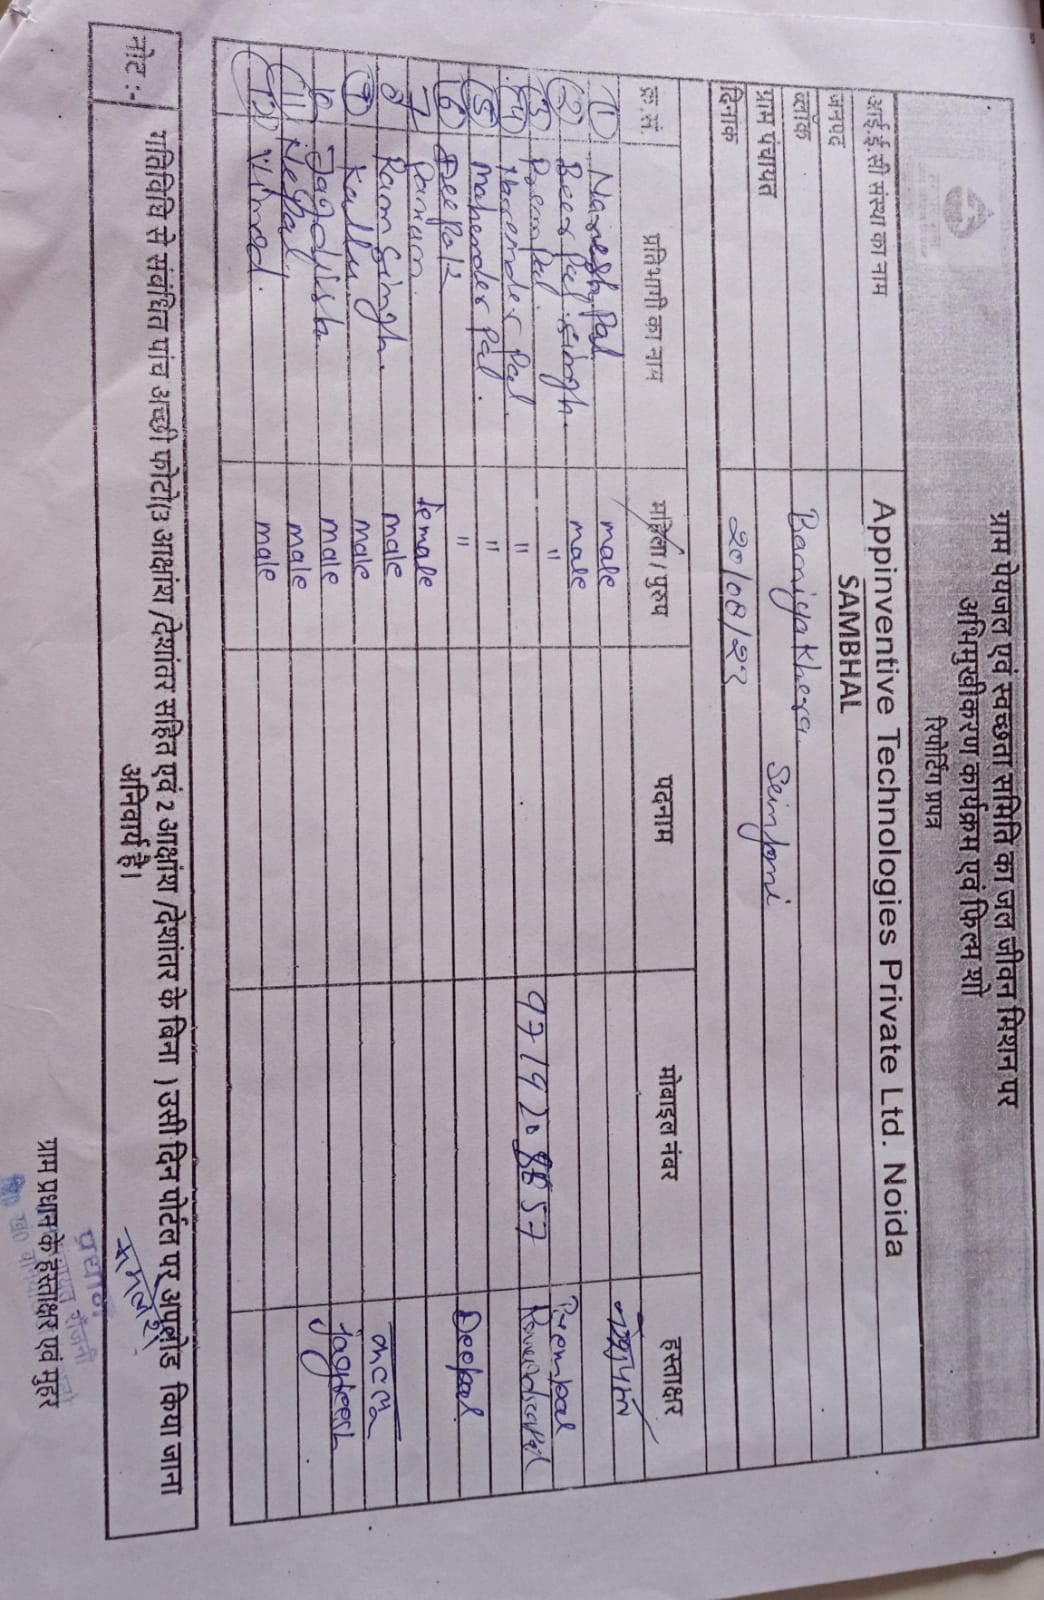 ग्राम पेयजल एवं स्वच्छता समिति का जल जीवन मिशन पर
अभिमुखीकरण कार्यक्रम एवं फिल्म शो
रिपोर्टिंग प्रपत्र
आई.ई.सी संस्था का नाम Appinventive Technologies Private Ltd. Noida
जनपद SAMBHAL
ब्लॉक Baniyakhera
ग्राम पंचायत
दिनांक 20/08/23
क्र.सं. प्रतिभागी का नाम महिला / पुरुष पदनाम मोबाइल नंबर हस्ताक्षर
1 Naresh Pal male
2 Beer Pal Singh male
3 Prem Pal " Prempal
4 Harender Pal " 9719208657
5 Mahender Pal "
6 Deepak " Deepak
7 female
8 Ram Singh male
9 Kallu male
10 Jagdish male Jagdeesh
11 Nepal male
12 Vinod male
नोट :- गतिविधि से संबंधित पांच अच्छी फोटो(3 आक्षांश /देशांतर सहित एवं 2 आक्षांश /देशांतर के बिना ) उसी दिन पोर्टल पर अपलोड किया जाना
अनिवार्य है।
प्रधान
ग्राम प्रधान के हस्ताक्षर एवं मुहर